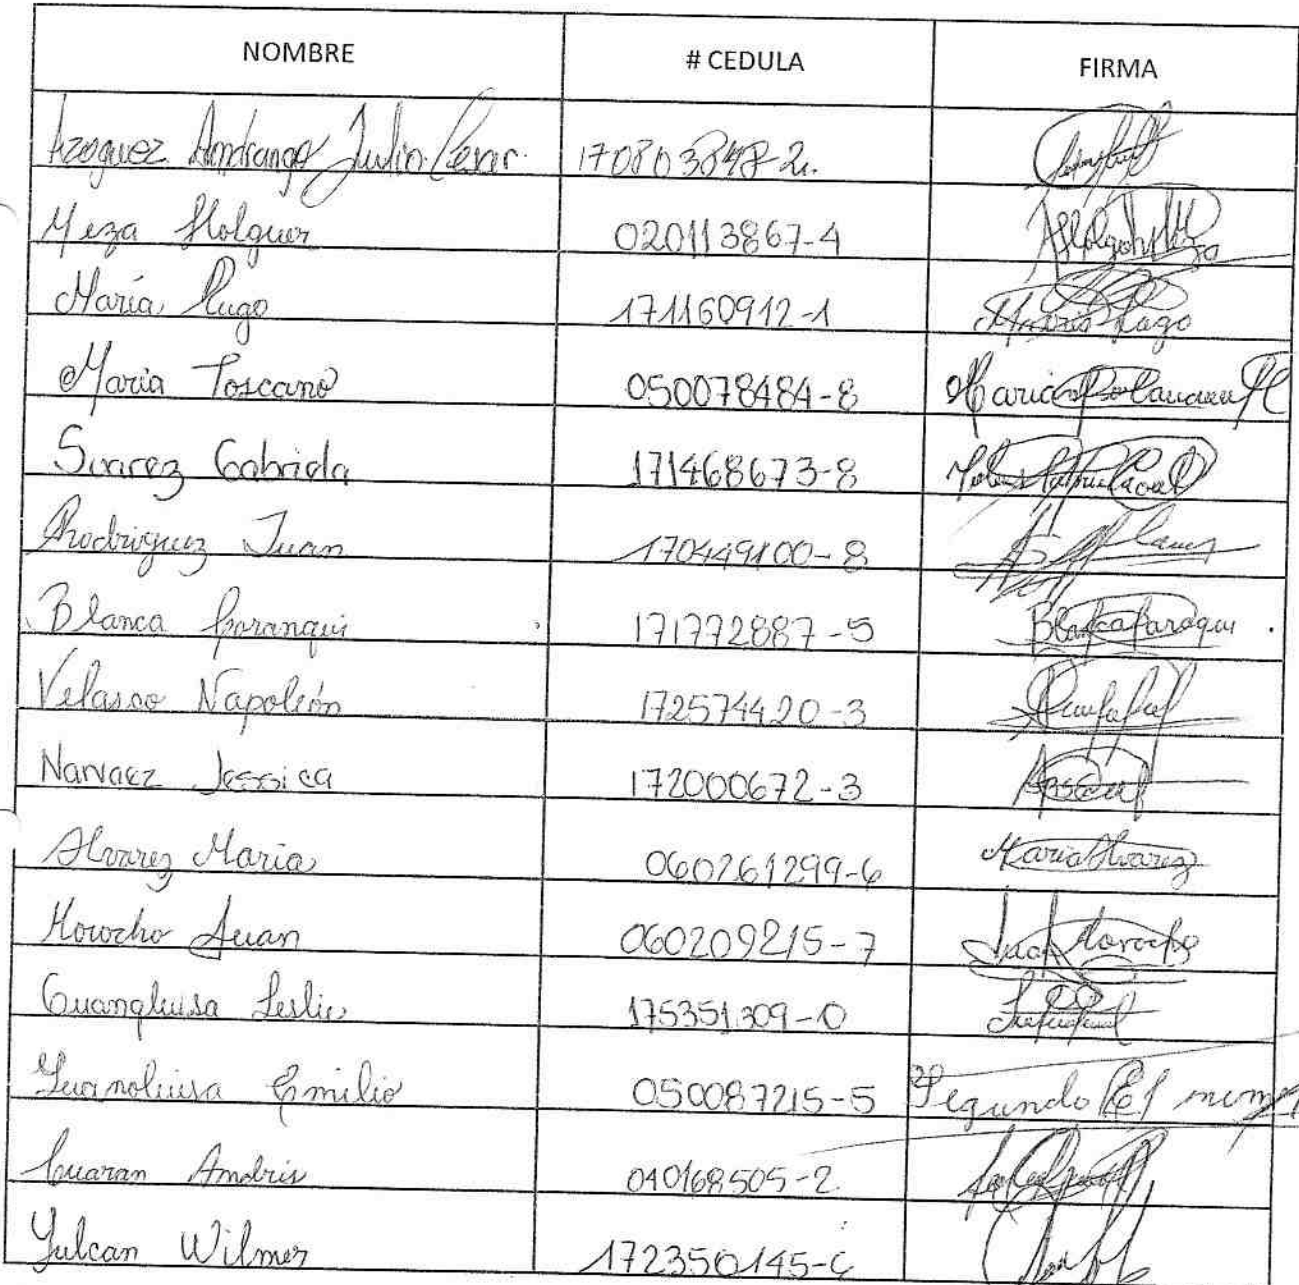 NOMBRE # CEDULA FIRMA
Azoguez Andrango Julio Cesar. 170803848-2.
Meza Holguer 020113867-4
María Lugo 171160912-1 Maria Lugo
Maria Toscano 050078484-8 Maria
Suarez Gabriela 171468673-8
Rodriguez Juan 170449100-8
Blanca Caranqui 171772887-5 Blanca Caraqui
Velasco Napoleón 172574420-3
Narvaez Jessica 172000672-3
Alvarez Maria 060261299-6 Maria Alvarez
Morocho Juan 060209215-7 Juan Morocho
Guangluisa Leslie 175351309-0
Guanoluisa Emilio 050087215-5 Segundo
Cuaran Andris 040168505-2
Yulcan Wilmer 172350145-